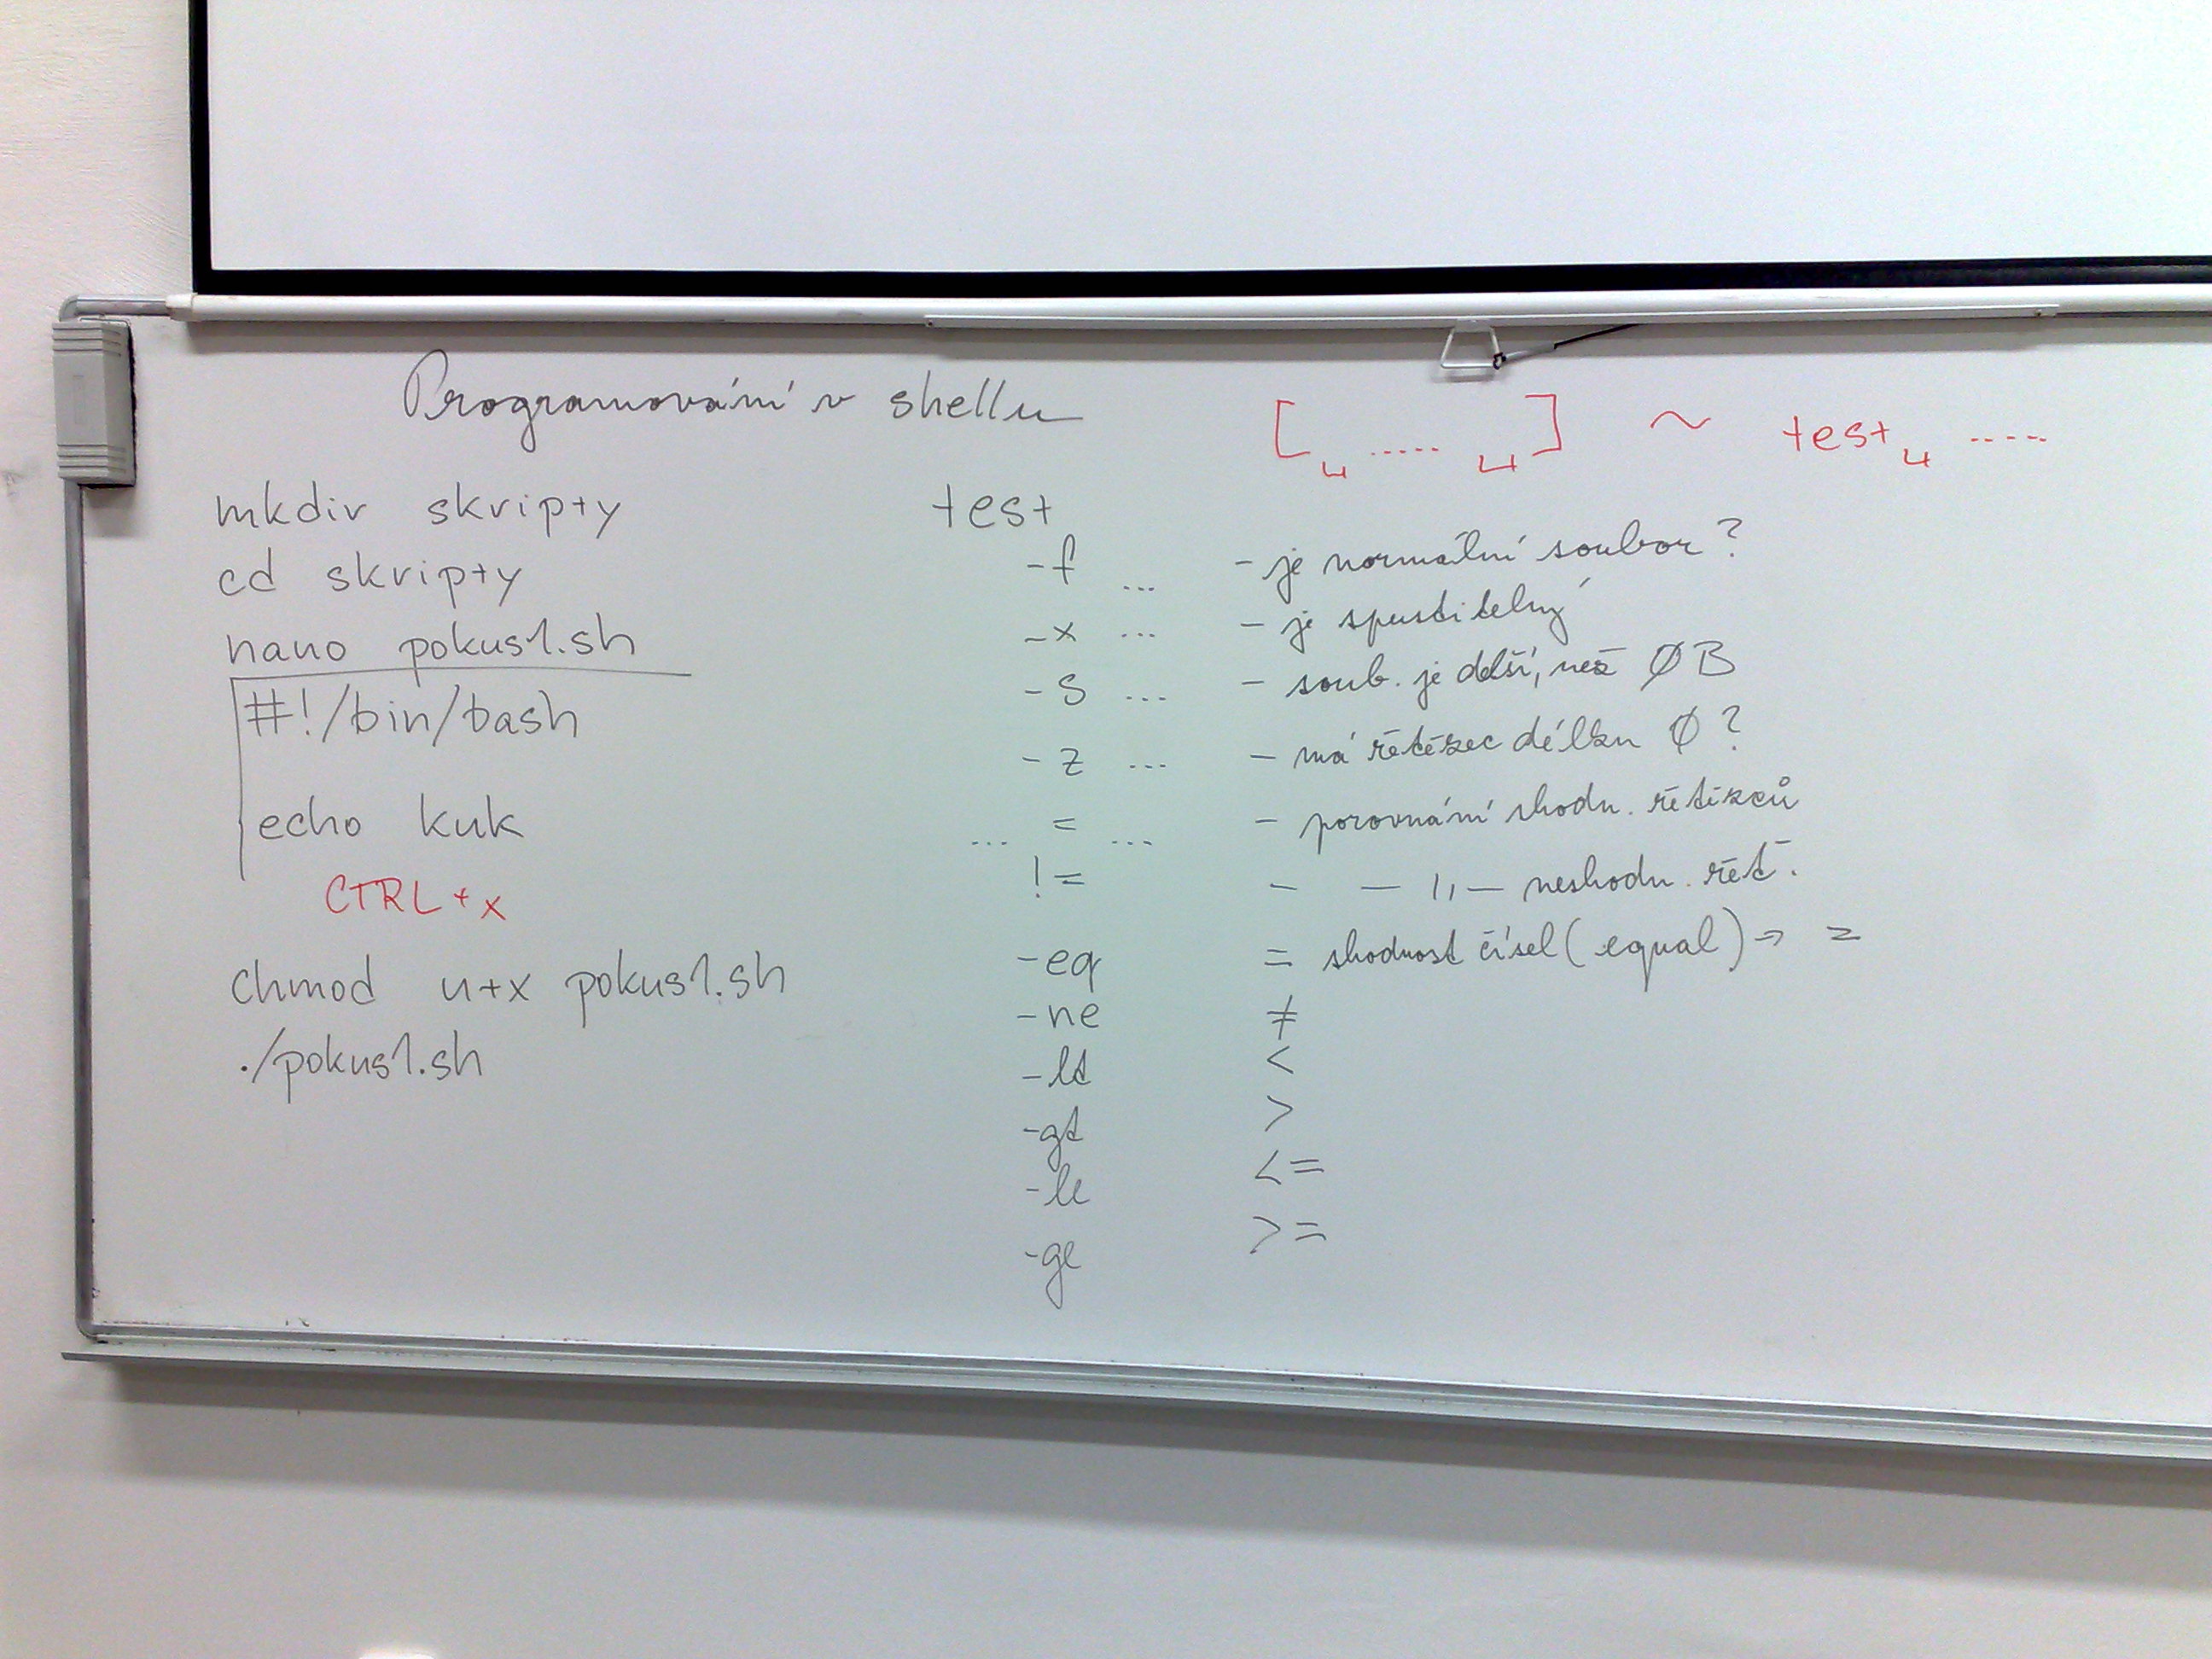 Programování v shellu
mkdir skripty
cd skripty
nano pokus1.sh
#!/bin/bash
echo kuk
CTRL+x
chmod u+x pokus1.sh
./pokus1.sh
[␣ ..... ␣] ~ test␣ .....
test
-f ... - je normální soubor?
-x ... - je spustitelný
-s ... - soub. je delší, než ØB
-z ... - má řetězec délku Ø?
... = ... - porovnání shodn. řetězců
!= - — 11 — neshodn. řet.
-eq = shodnost čísel (equal) → =
-ne ≠
-lt <
-gt >
-le <=
-ge >=